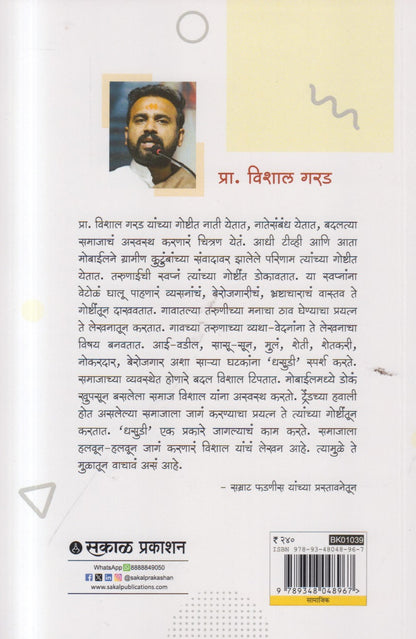 प्रा. विशाल गरड
प्रा. विशाल गरड यांच्या गोष्टीत नाती येतात, नातेसंबंध येतात, बदलत्या
समाजाचं अस्वस्थ करणारं चित्रण येतं. आधी टीव्ही आणि आता
मोबाईलने ग्रामीण कुटुंबांच्या संवादावर झालेले परिणाम त्यांच्या गोष्टीत
येतात. तरुणाईची स्वप्नं त्यांच्या गोष्टींत डोकावतात. या स्वप्नांना
वेटोळं घालू पाहणारं व्यसनांचं, बेरोजगारीचं, भ्रष्टाचाराचं वास्तव ते
गोष्टींतून दाखवतात. गावातल्या तरुणीच्या मनाचा ठाव घेण्याचा प्रयत्न
ते लेखनातून करतात. गावच्या तरुणाच्या व्यथा-वेदनांना ते लेखनाचा
विषय बनवतात. आई-वडील, सासू-सून, मुलं, शेती, शेतकरी,
नोकरदार, बेरोजगार अशा साऱ्या घटकांना 'धसुडी' स्पर्श करते.
समाजाच्या व्यवस्थेत होणारे बदल विशाल टिपतात. मोबाईलमध्ये डोकं
खुपसून बसलेला समाज विशाल यांना अस्वस्थ करतो. ट्रेंडच्या हवाली
होत असलेल्या समाजाला जागं करण्याचा प्रयत्न ते त्यांच्या गोष्टींतून
करतात. 'धसुडी' एक प्रकारे जागल्याचं काम करते. समाजाला
हलवून-हलवून जागं करणारं विशाल यांचं लेखन आहे. त्यामुळे ते
मुळातून वाचावं असं आहे.
- सम्राट फडणीस यांच्या प्रस्तावनेतून
सकाळ प्रकाशन
WhatsApp 8888849050
@sakalprakashan
www.sakalpublications.com
₹ २४०
BK01039
ISBN 978-93-48048-96-7
9 789348 048967
सामाजिक